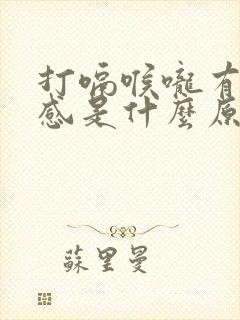 打嗝喉嚨有
感是什麼原
蘇里曼